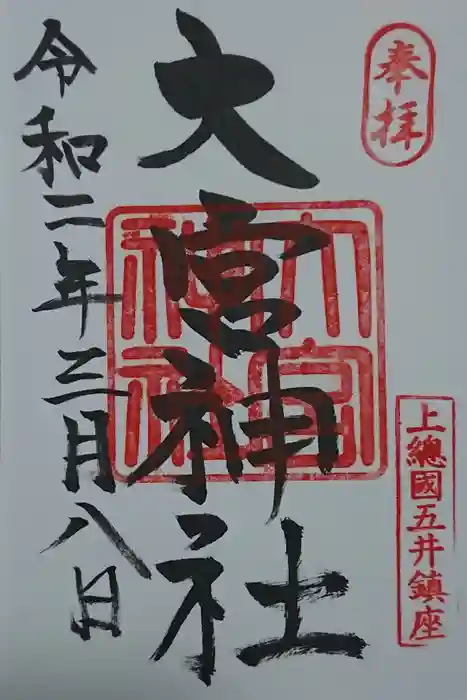 奉拝
上總國五井鎮座
大宮神社
大宮神社
令和二年三月八日